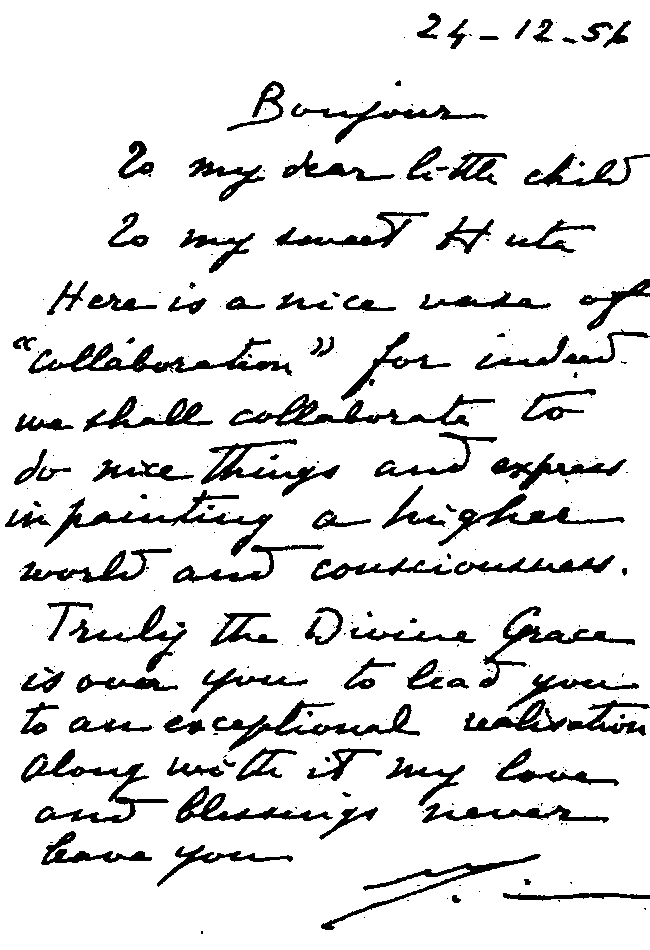 24-12-56
Bonjour
To my dear little child
To my sweet Huta
Here is a nice vase of
"collaboration" for indeed
we shall collaborate to
do nice things and express
in painting a higher
world and consciousness.
Truly the Divine Grace
is over you to lead you
to an exceptional realisation
along with it my love
and blessings never
leave you